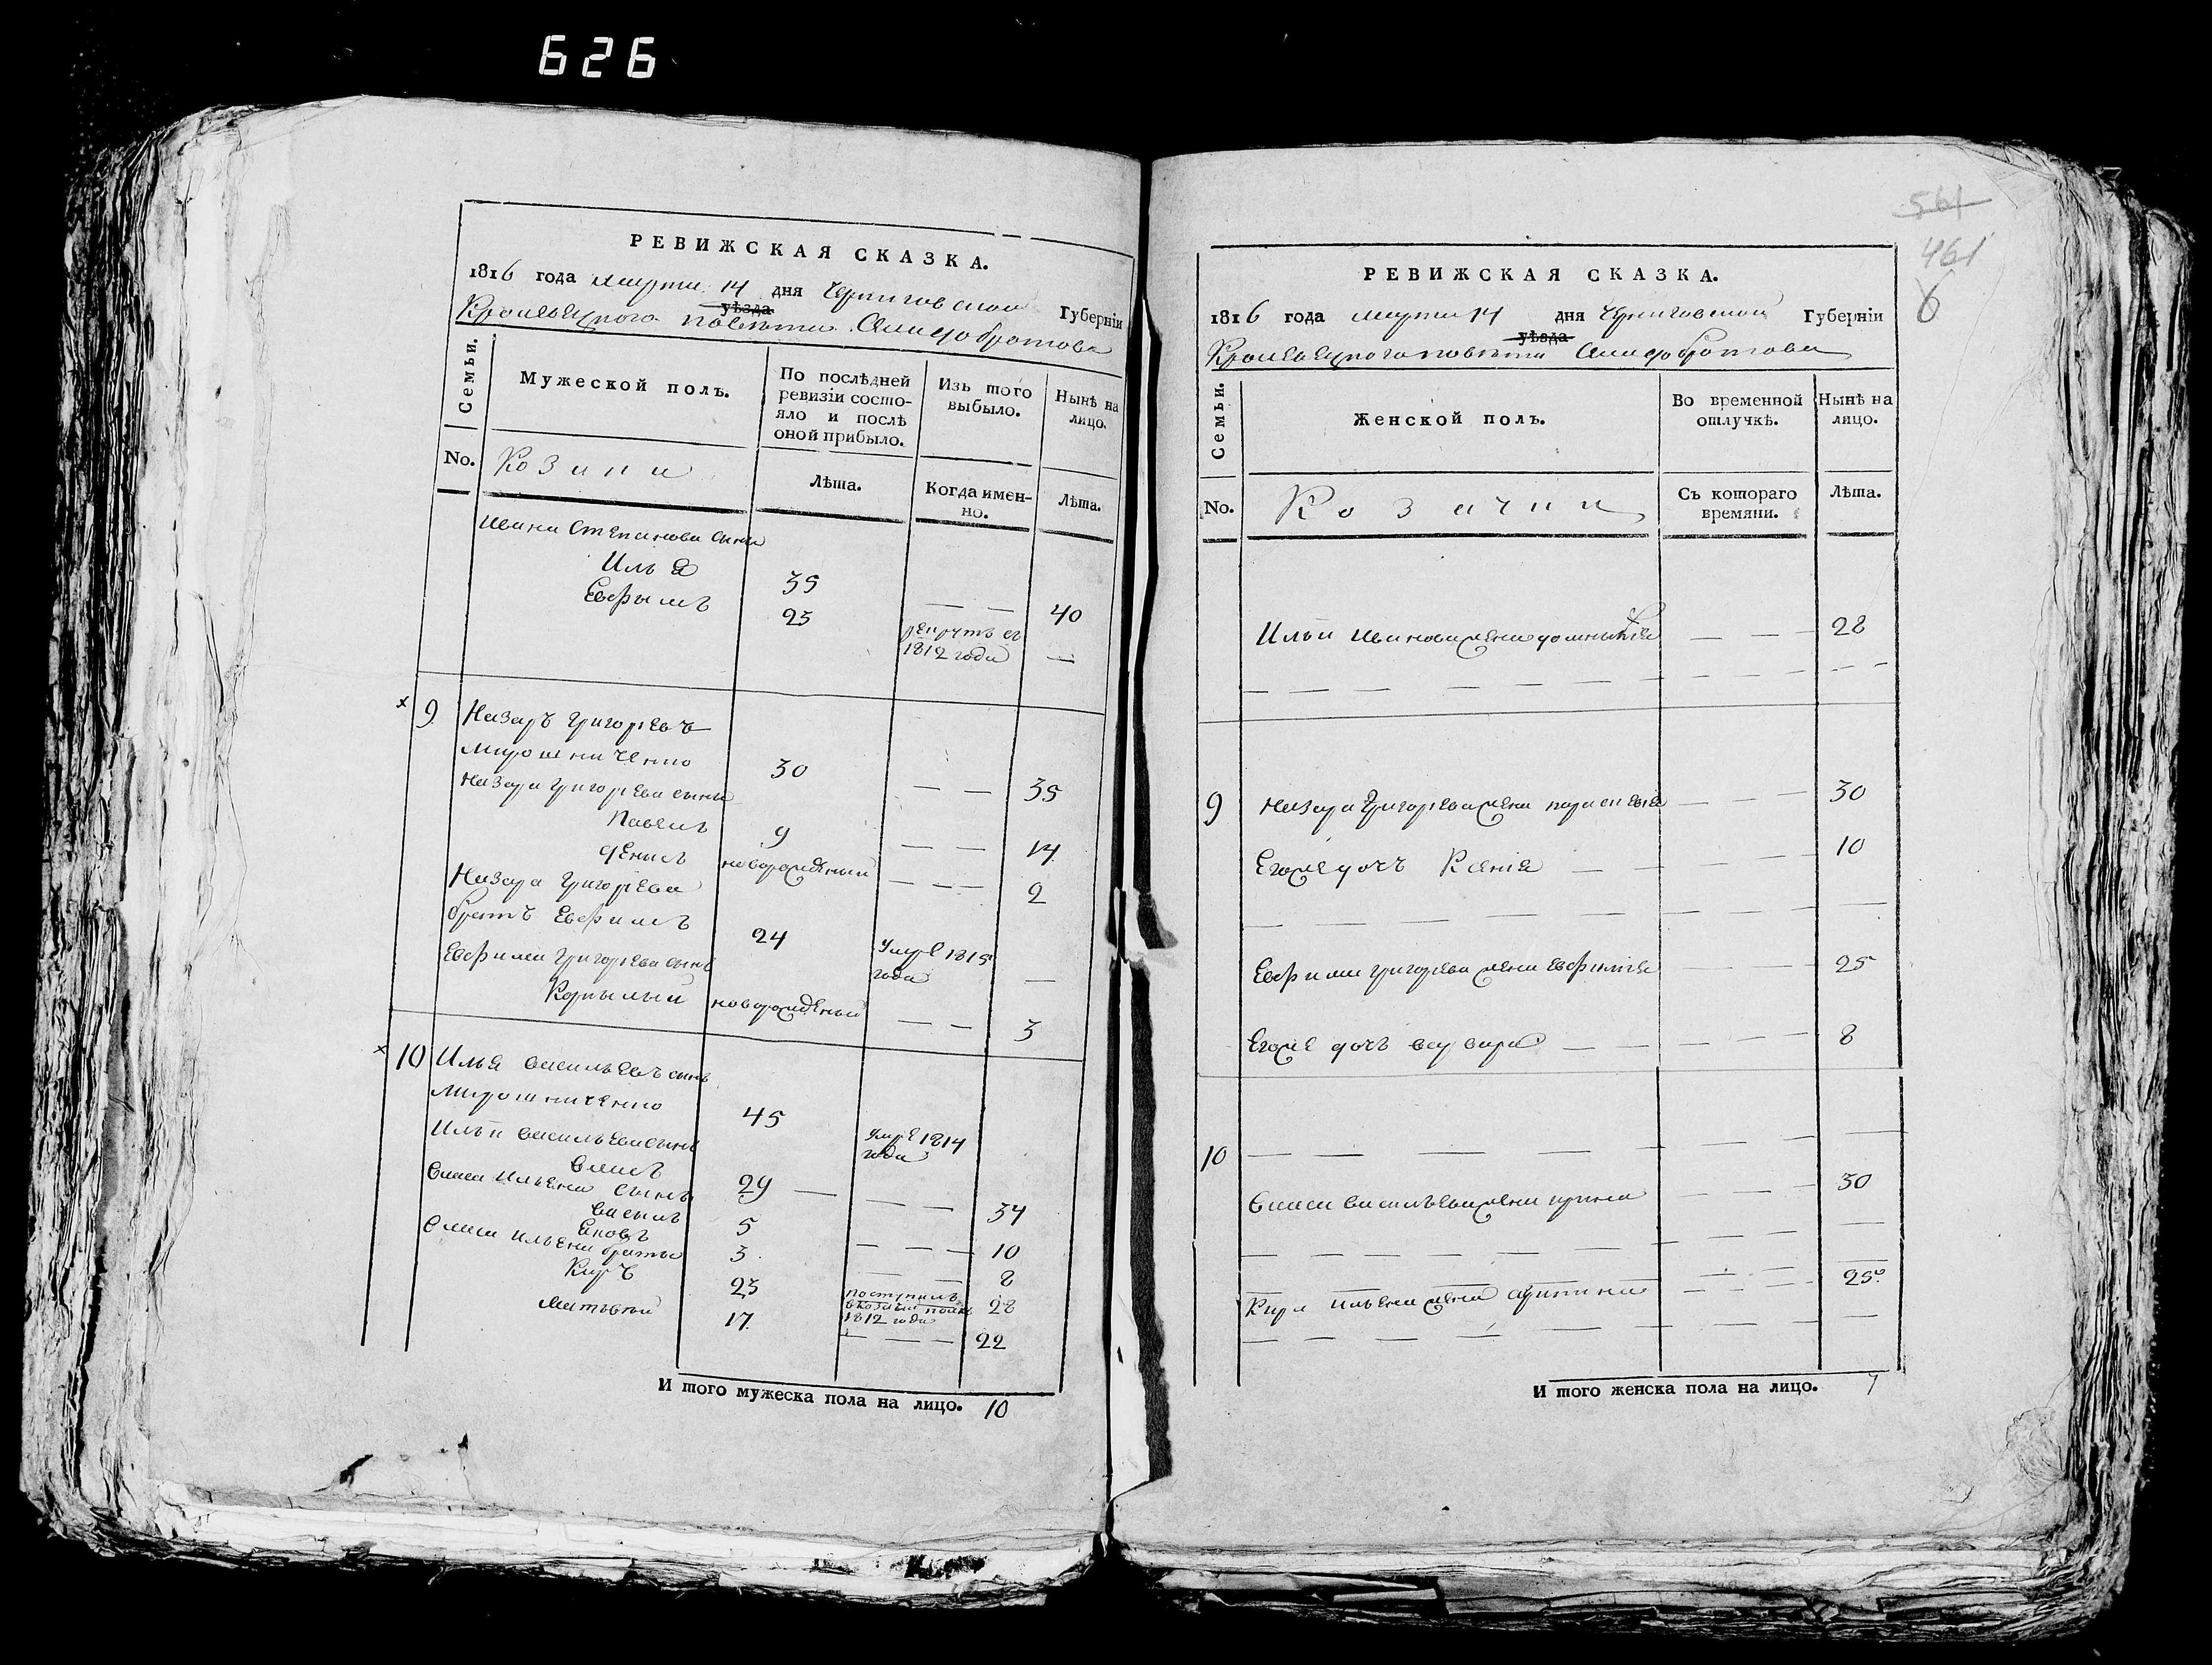 626
РЕВИЖСКАЯ СКАЗКА.
1816 года марта 14 дня Черниговской Губерніи
уѣзда
Кролевецкого повѣта
Семьи.
Мужеской полъ.
По послѣдней ревизіи состо-
яло и послѣ
оной прибыло.
Изъ того
выбыло.
Нынѣ на
лицо.
No.
Козаки
Лѣта.
Когда имен-
но.
Лѣта.
Ивана Степанова сына
Илья 35 — — 40
Евфымъ 25 рекрутъ съ
1812 года —
9 Назаръ Григорьевъ
Мирошниченко 30 — — 35
Назара Григорьева сыны
Павелъ 9 — — 14
Денисъ новорожденный — — — 2
Назара Григорьева
братъ Евфимъ 24 умре 1815
года —
Евфима Григорьева сынъ
Корнылий новорожденный — — 3
10 Илья Васильевъ сынъ
Мирошниченко 45 умре 1814
года
Ильи Васильева сынъ
Власъ 29 — — — 34
Власа Ильена сыны
Васыль 5 — — — 10
Яковъ 3 — — 8
Власа Ильена братья
Киръ 23 поступилъ
в козачий полкъ
1812 года 28
Матвѣй 17 — — — 22
И того мужеска пола на лицо. 10
561
461
6
РЕВИЖСКАЯ СКАЗКА.
1816 года марта 14 дня Черниговской Губерніи
уѣзда
Кролевецкого повѣта
Семьи.
Женской полъ.
Во временной
отлучкѣ.
Нынѣ на
лицо.
No.
Козачки
Съ котораго
времяни.
Лѣта.
Ильи Иванова жена — — 28
9 Назара Григорьева жена — — 30
Егоже дочь Ксенія — — 10
Евфима Григорьева жена Евфимія — — 25
Егоже дочь — — — — 8
10 — — — —
Власа Васильева жена — — 30
Кира Ильена жена — — 25
И того женска пола на лицо. 7